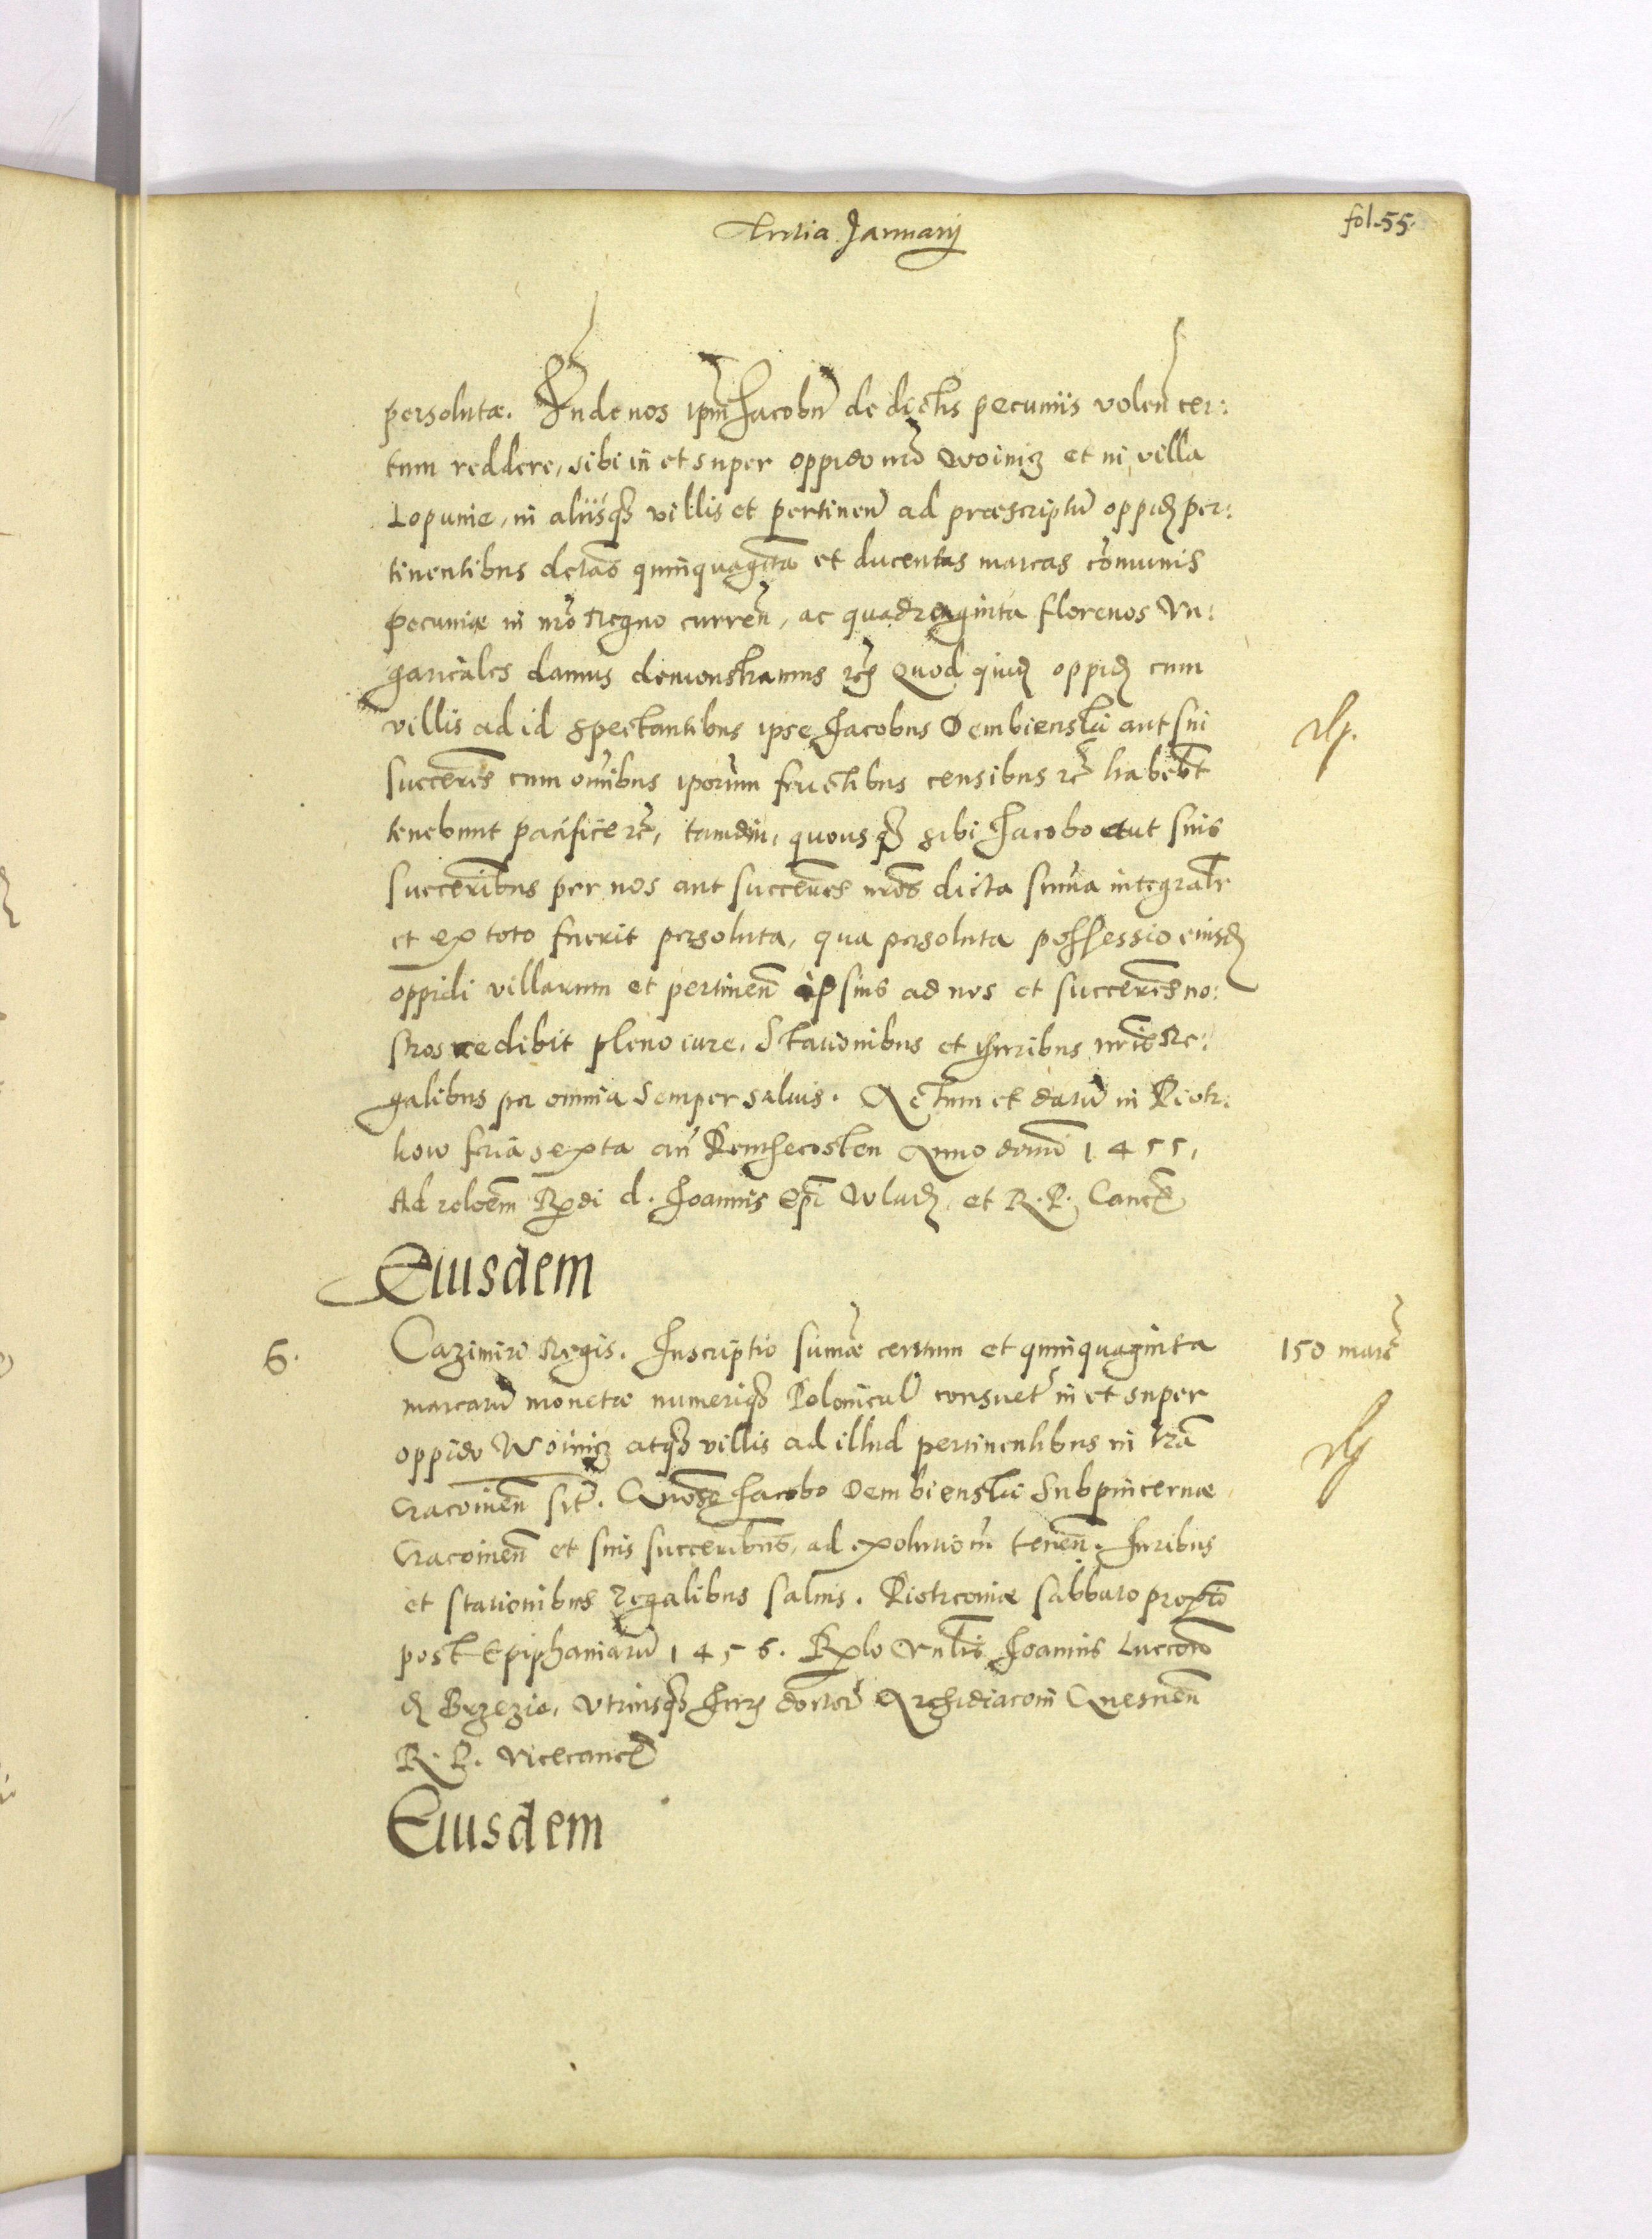 Tertia Januarij
fol. 55.
persolutae. Inde nos ipm̃ Jacobũ de dictis pecuniis voleñ cer:
tum reddere, sibi in et super oppido nrõ Woinicz et in villa
Lopunie, in aliisq̃ villis et pertineñ ad praescriptũ oppid per:
tinentibus dctas quinquaginta et ducentas marcas cõmunis
pecuniae in nrõ Regno curreñ, ac quadraginta florenos Vn:
garicales damus demonstramus etc̃ Quod quid oppid cum
villis ad id spectantibus ipse Jacobus Dembienski aut sui
succeres cum omibus iporum fructibus censibus etc̃ habebt
tenebunt pacifice etc̃, tamdiu, quousq̃ sibi Jacobo aut suis
succeribus per nos aut succeres nros dicta suma integralr
et ex toto fuerit persoluta, qua persoluta possessio eiusd
oppidi villarum et pertineñ ipsius ad nos et succeres no:
stros redibit pleno iure. Stationibus et Iuribus nris Re:
galibus per omnia semper saluis. Actum et datũ in Piotr:
kow feria sexta añ Penthecosten Anno domi 1455.
Ad reloem Rdi d. Joannis Epi Wlad. et R. P. Canc
Eiusdem
6.
Cazimiri Regis. Inscriptio sumae centum et quinquaginta
150 marc
marcarũ monetae numeriq̃ Polonical consuet in et super
oppido Woinicz atq̃ villis ad illud pertinentibus in tra
Cracouieñ sit. Gnoso Jacobo Dembienski Subpincernae
Cracouieñ et suis succeribus, ad exolutiom teneñ. Iuribus
et stationibus Regalibus saluis. Piotrcouiae sabbato proxio
post Epiphaniarũ 1456. Rlo Vnlis Joannis Lucconis
d Brzezie, Vtriusq̃ Iuris doctor Archidiaconi Gnesneñ
R. P. Vicecanc
Eiusdem